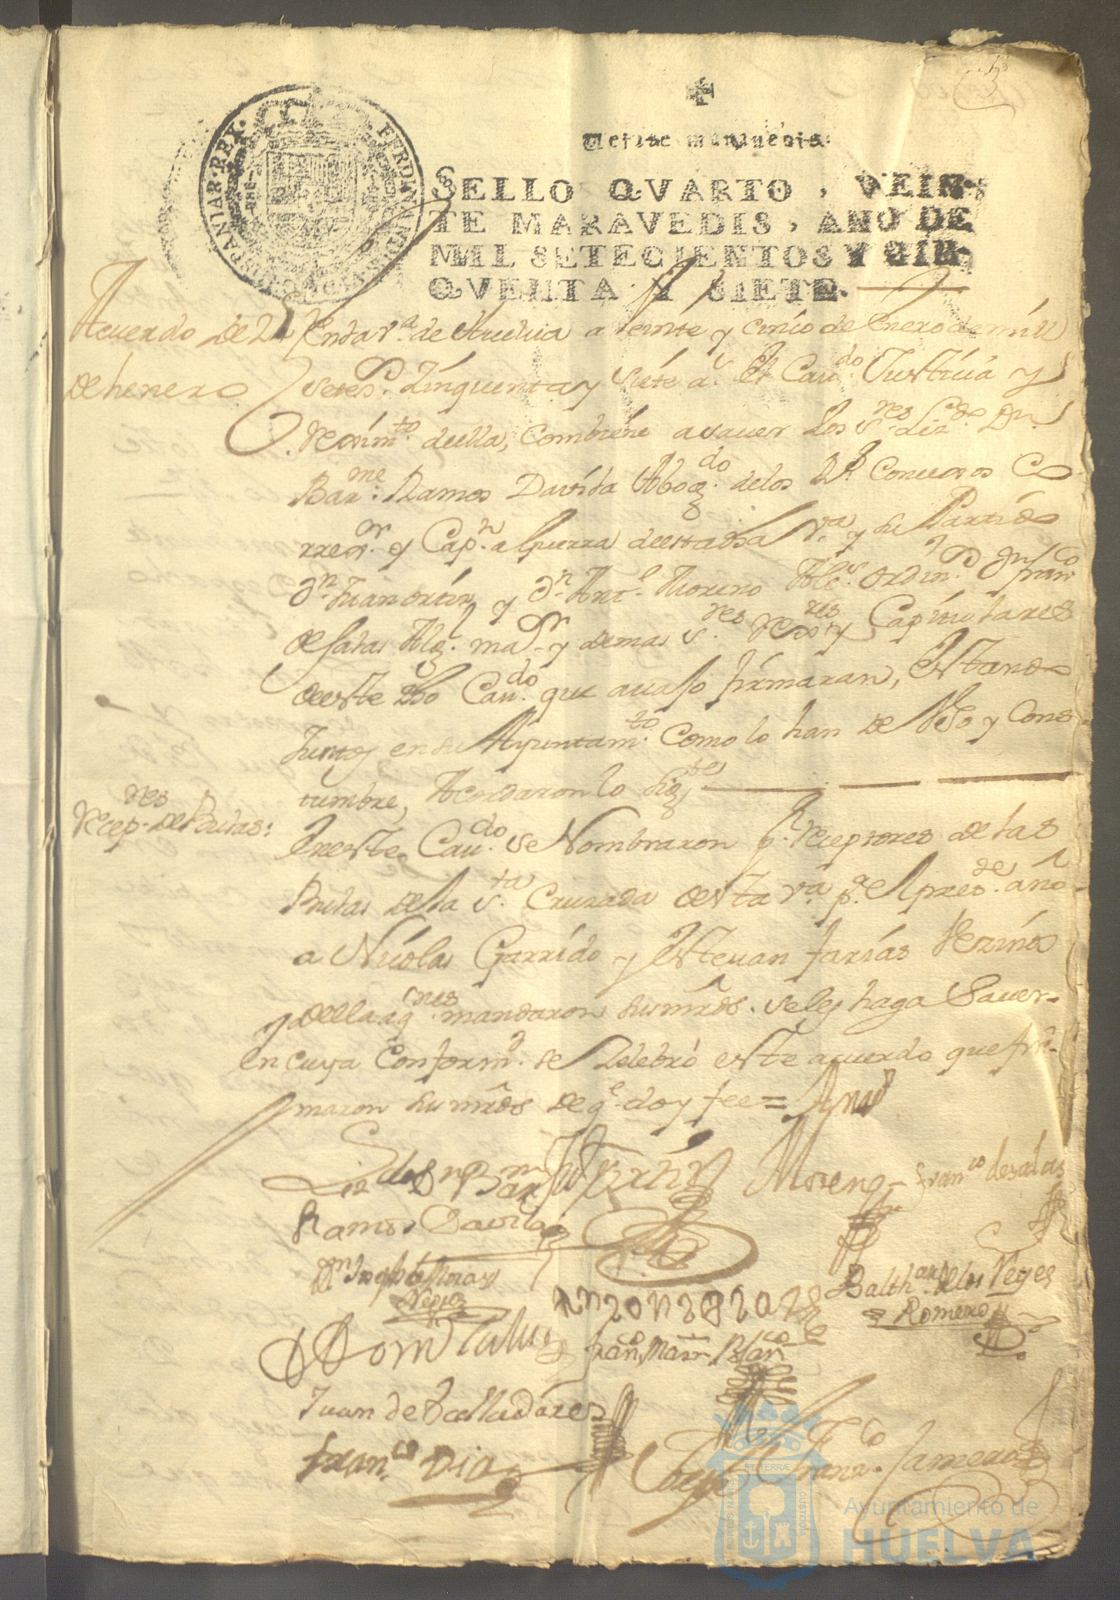 Veinte maravedis.
SELLO QVARTO, VEIN-
TE MARAVEDIS, AÑO DE
MIL SETECIENTOS Y CIN-
QVENTA Y SIETE.
HISPANIAR·REX·
Acuerdo de 25
de henero
En la va. de Huelva a veinte y cinco de Enero de mill
setezs. Zinquenta y siete as. el Cavdo. Justicia y
Reximto. de ella, combiene a saver los sres. Lizdo. Dn.
Barme. Ramos Davila Abogdo. de los Rs. Consexos Co
rregor. y Capn. a Guerra de esta dha va. y su Partido
dn. Juan ortiz, y dn. Anto. Moreno Alcs. ordins. dn. franco
de salas Algl. mayr. y demas sres. rexres. y Capitulares
de este dho Cavdo. que avajo firmaran, estando
Juntos en su Ayuntamto. como lo han de Uso y Cons
tumbre, Acordaron lo sigte
Recepres. de Bulas:
En este Cavdo. se Nombraron pr. receptores de las
Bulas de la sta. Cruzada de esta va. pa. el presde. año
a Nicolas Garrido y Estevan farias Vezinos
de ella a qnes mandaron sus mrds. se les haga saver
en cuya Conformd. se Zelebró este acuerdo que fir-
maron sus mrds de qe. doy fee =
Lizdo Dn Barme
Ramos Davila
Juo ortiz
Moreno
franco de salas
Balthar. de los Reyes
Romero
franco Marn. Blanco
Juan de Valladares
franco Dia
Jorje Franco. Camero
Ayuntamiento de
HUELVA